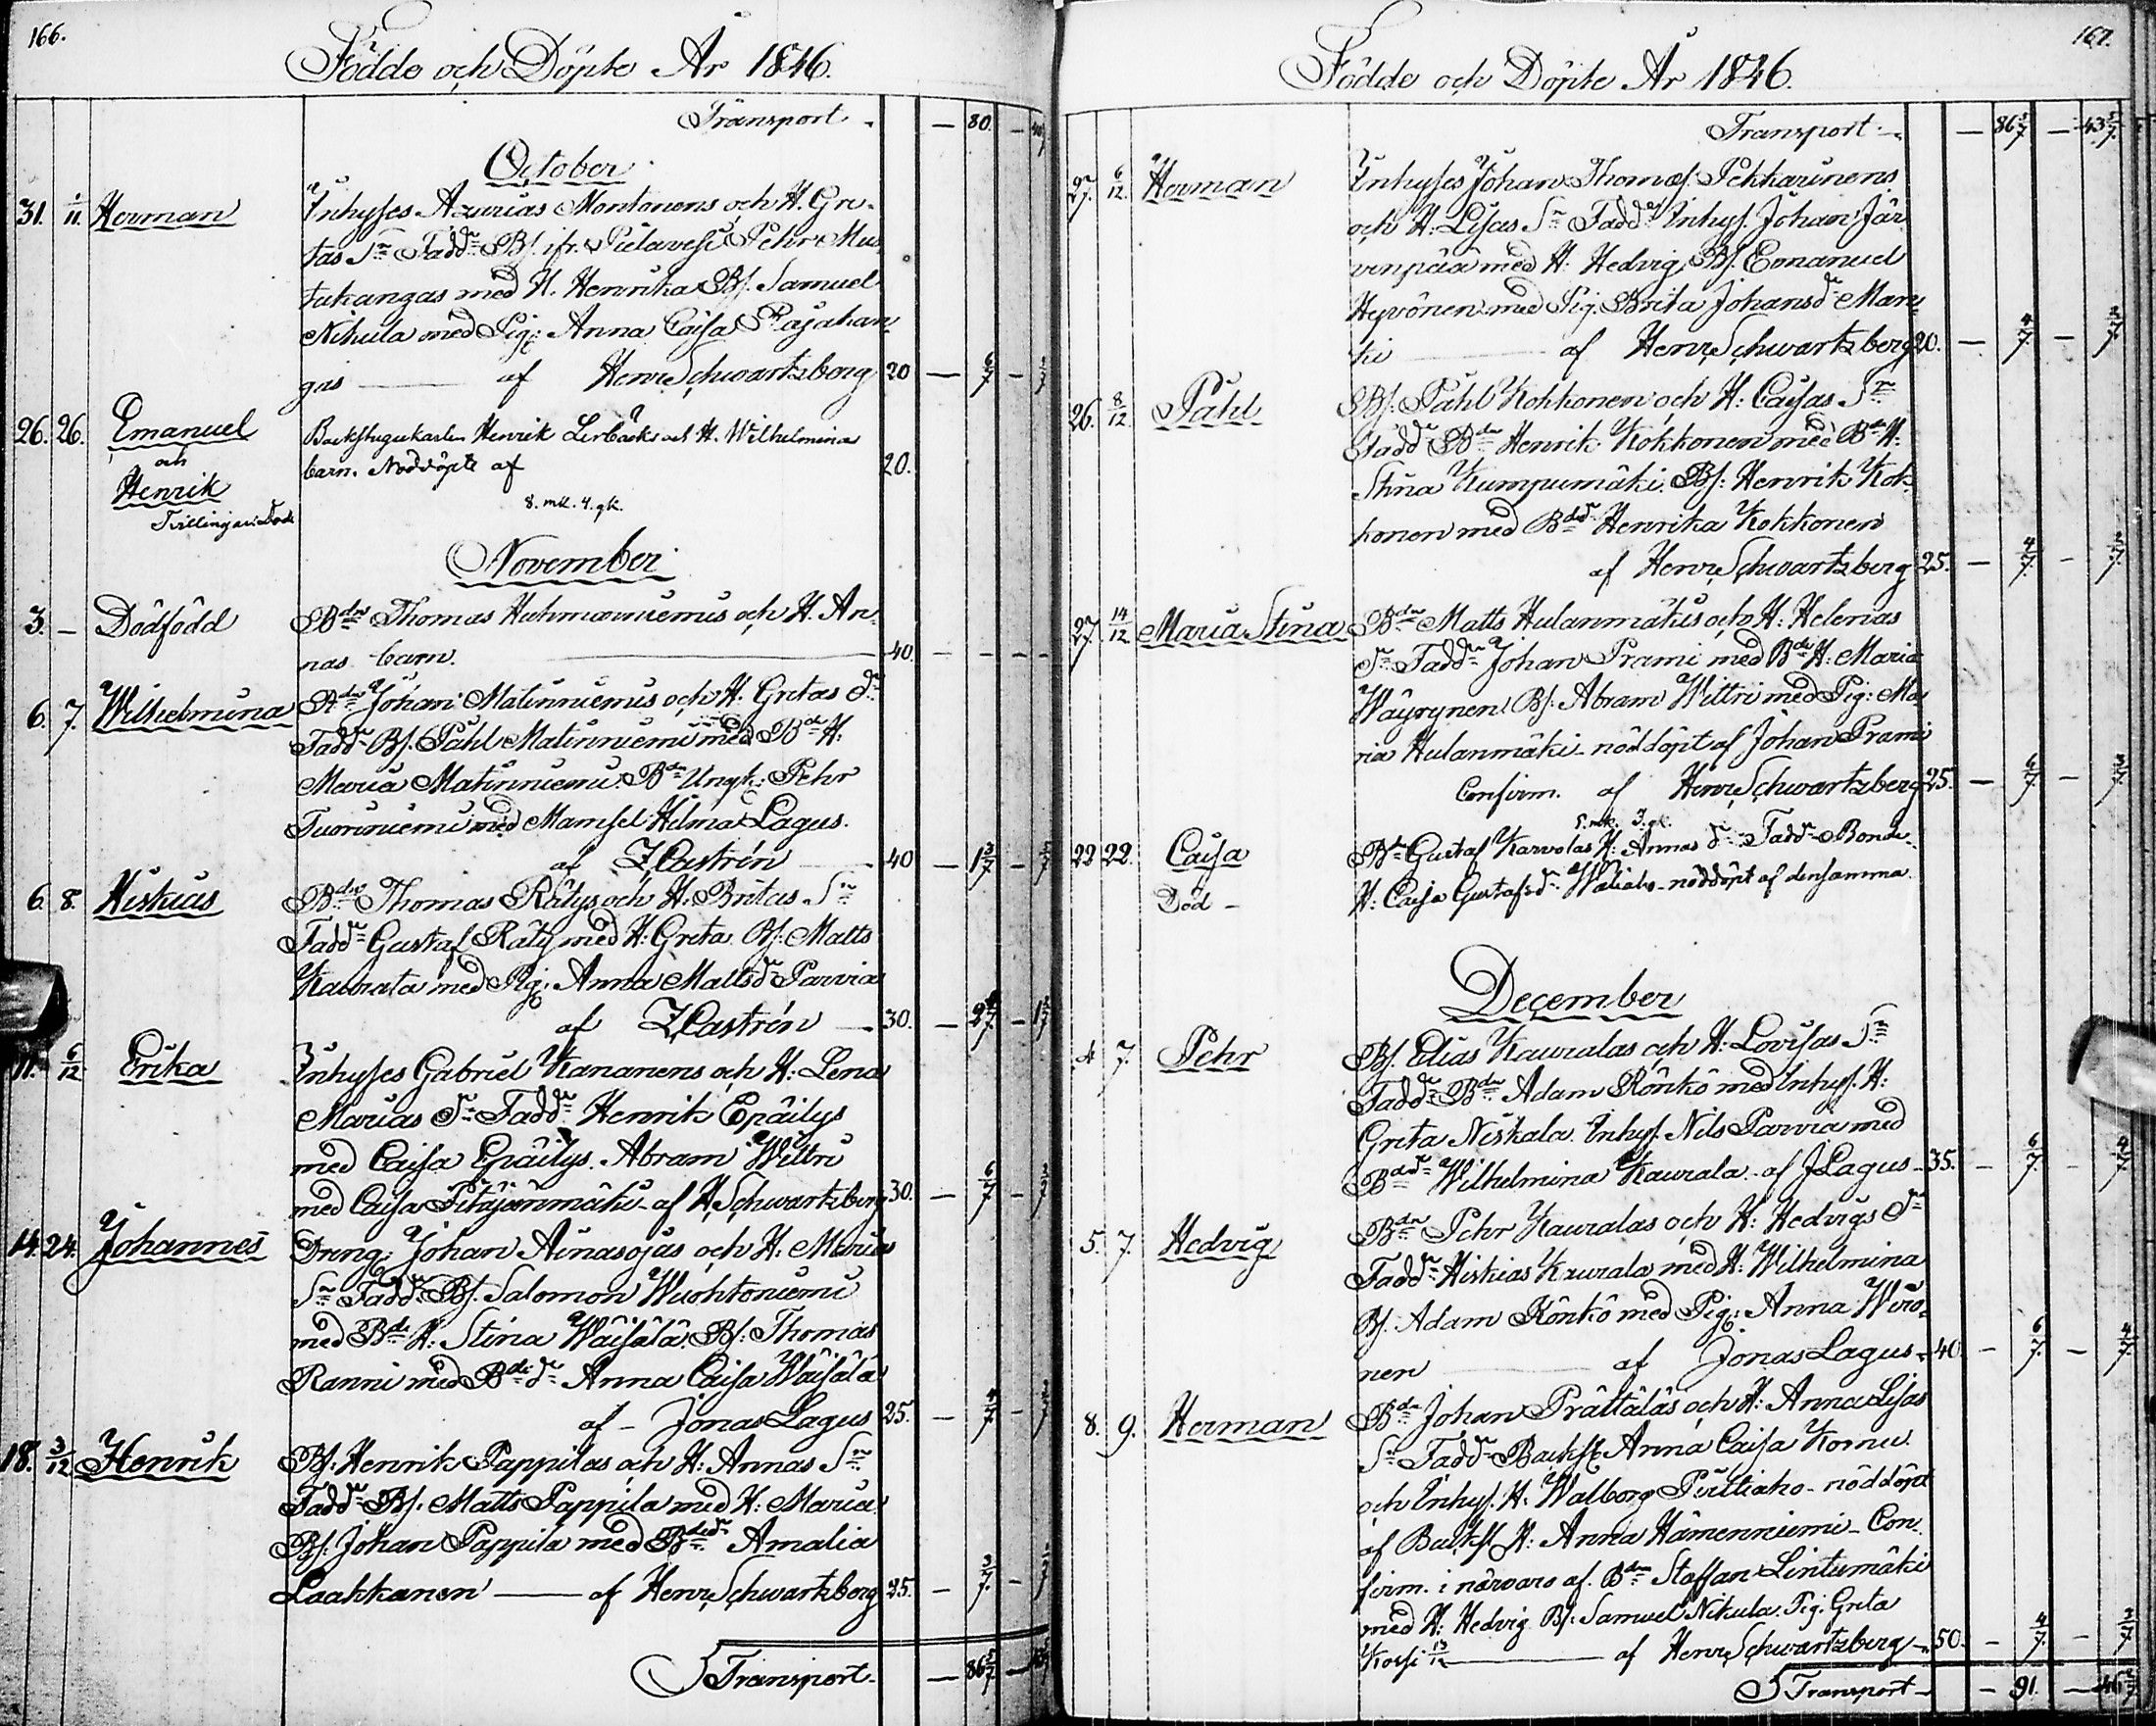 166.
Födde och Döpte År 1846.
Transport - — 80. —
October
31. 1/11. Herman Inhyses Azarias Montonens och H. Gre-
tas Sn Faddr Bs. ifr. Pielavesi Pehr Mus-
takangas med H. Henrika Bs. Samuel
Nikula med Pig: Anna Caisa Rajakan-
gas — af Henr Schwartzberg 20 — 6/7 — 3/7
26. 26. Emanuel Backstugukarlen Henrik Lerbacks och H. Wilhelmina
och barn. Nöddöpte af 20.
Henrik 8. mk. 4. gk.
Tvillingar. Döde
November
3. — Dödfödd Bdn Thomas Huhmarniemis och H. An-
nas barn. — 40. — — — —
6. 7. Wilhelmina Bdn Johan Matinniemis och H. Gretas dr
Faddr Bs. Påhl Matinniemi med Bd H.
Maria Matinniemi. Bdn Ungk: Pehr
Tuoriniemi med Mamsel Hilma Lagus.
af Z Castrén — 40 — 1 3/7 — 5/7
6. 8. Hiskias Bdn Thomas Rätys och H. Britas Sn
Faddr Gustaf Räty med H: Greta. Bs: Matts
Kaurata med Pig: Anna Mattsdr Parvia
af Z Castrén — 30. — 2 4/7 — 1 2/7
11. 6/12 Erika Inhyses Gabriel Kananens och H: Lena
Marias dr Faddr Henrik Epäilys
med Caisa Epäilys. Abram Wittri
med Caisa Pitäjänmäki - af H. Schwartzberg 30. — 6/7 — 3/7
14. 24. Johannes Dreng: Johan Ainasojas och H: Marias
Sn Faddr Bs. Salomon Wuohtoniemi
med Bde H: Stina Wäisälä. Bs: Thomas
Ranni med Bde dr Anna Caisa Wäisälä
af - Jonas Lagus 25. — 4/7 — 2/7
18. 3/12 Henrik Bs. Henrik Pappilas och H: Annas Sn
Faddr Bs. Matts Pappila med H: Maria.
Bs. Johan Pappila med Bdedr Amalia
Laakkonen — af Henr Schwartzberg 25. — 3/7 —
Transport - — 86 5/7 —
167.
Födde och Döpte År 1846.
Transport - — 86 5/7 — 43 5/7
27. 6/12. Herman Inhyses Johan Thomas Pekkarinens
och H: Lisas Sn Faddr Inhys. Johan Jär-
venpää med H: Hedvig, Bs. Emanuel
Hyvönen med Pig. Brita Johansdr Mars-
ki — af Henr Schwartzberg 20. — 4/7 — 2/7
26. 8/12 Påhl Bs: Påhl Kokkonen och H: Caisas Sn
Faddr Bdn Henrik Kokkonen med Bde H:
Stina Kumpumäki. Bs: Henrik Kok-
konen med Bdedr Henrika Kokkonen
af Henr Schwartzberg 25. — 4/7 — 2/7
27. 14/12 Maria Stina Bdn Matts Hulanmäkis och H: Helenas
dr Faddr Johan Prami med Bde H: Maria
Wäyrynen. Bs: Abram Wittri med Pig: Ma-
ria Hulanmäki - nöddöpt af Johan Prami
Confirm. af Henr Schwartzberg 25. — 6/7 — 3/7
5. mk. 3. gk.
22 22. Caisa Bdn Gustaf Karvolas H: Annas dr Faddr Bonde-
Död - H: Caisa Gustafsdr Waliaho - nöddöpt af densamma
December
4 7. Pehr Bs. Elias Kauralas och H: Lovisas Sn
Faddr Bdn Adam Rönkö med Inhys. H:
Greta Niskala. Inhys. Nils Parvia med
Bdedr Wilhelmina Kaurala - af J Lagus - 35. — 6/7 — 4/7
5. 7. Hedvig Bdn Pehr Kauralas och H: Hedvigs dr
Faddr Hiskias Kaurala med H: Wilhelmina
Bs. Adam Rönkö med Pig: Anna Wiro-
nen — af Jonas Lagus - 40. — 6/7 — 4/7
8. 9. Herman Bdn Johan Prättäläs och H: Anna Lisas
Sn Faddr Backst Anna Caisa Kornu
och Inhys. H: Walborg Pulliaho - nöddöpt
af Backst H: Anna Hämenniemi - Con-
firm. i närvaro af Bdn Staffan Lintumäki
med H: Hedvig. Bs: Samuel Nikula. Pig. Greta
Korpi 13/12 — af Henr Schwartzberg - 50. — 4/7 — 2/7
Transport - — 91 —